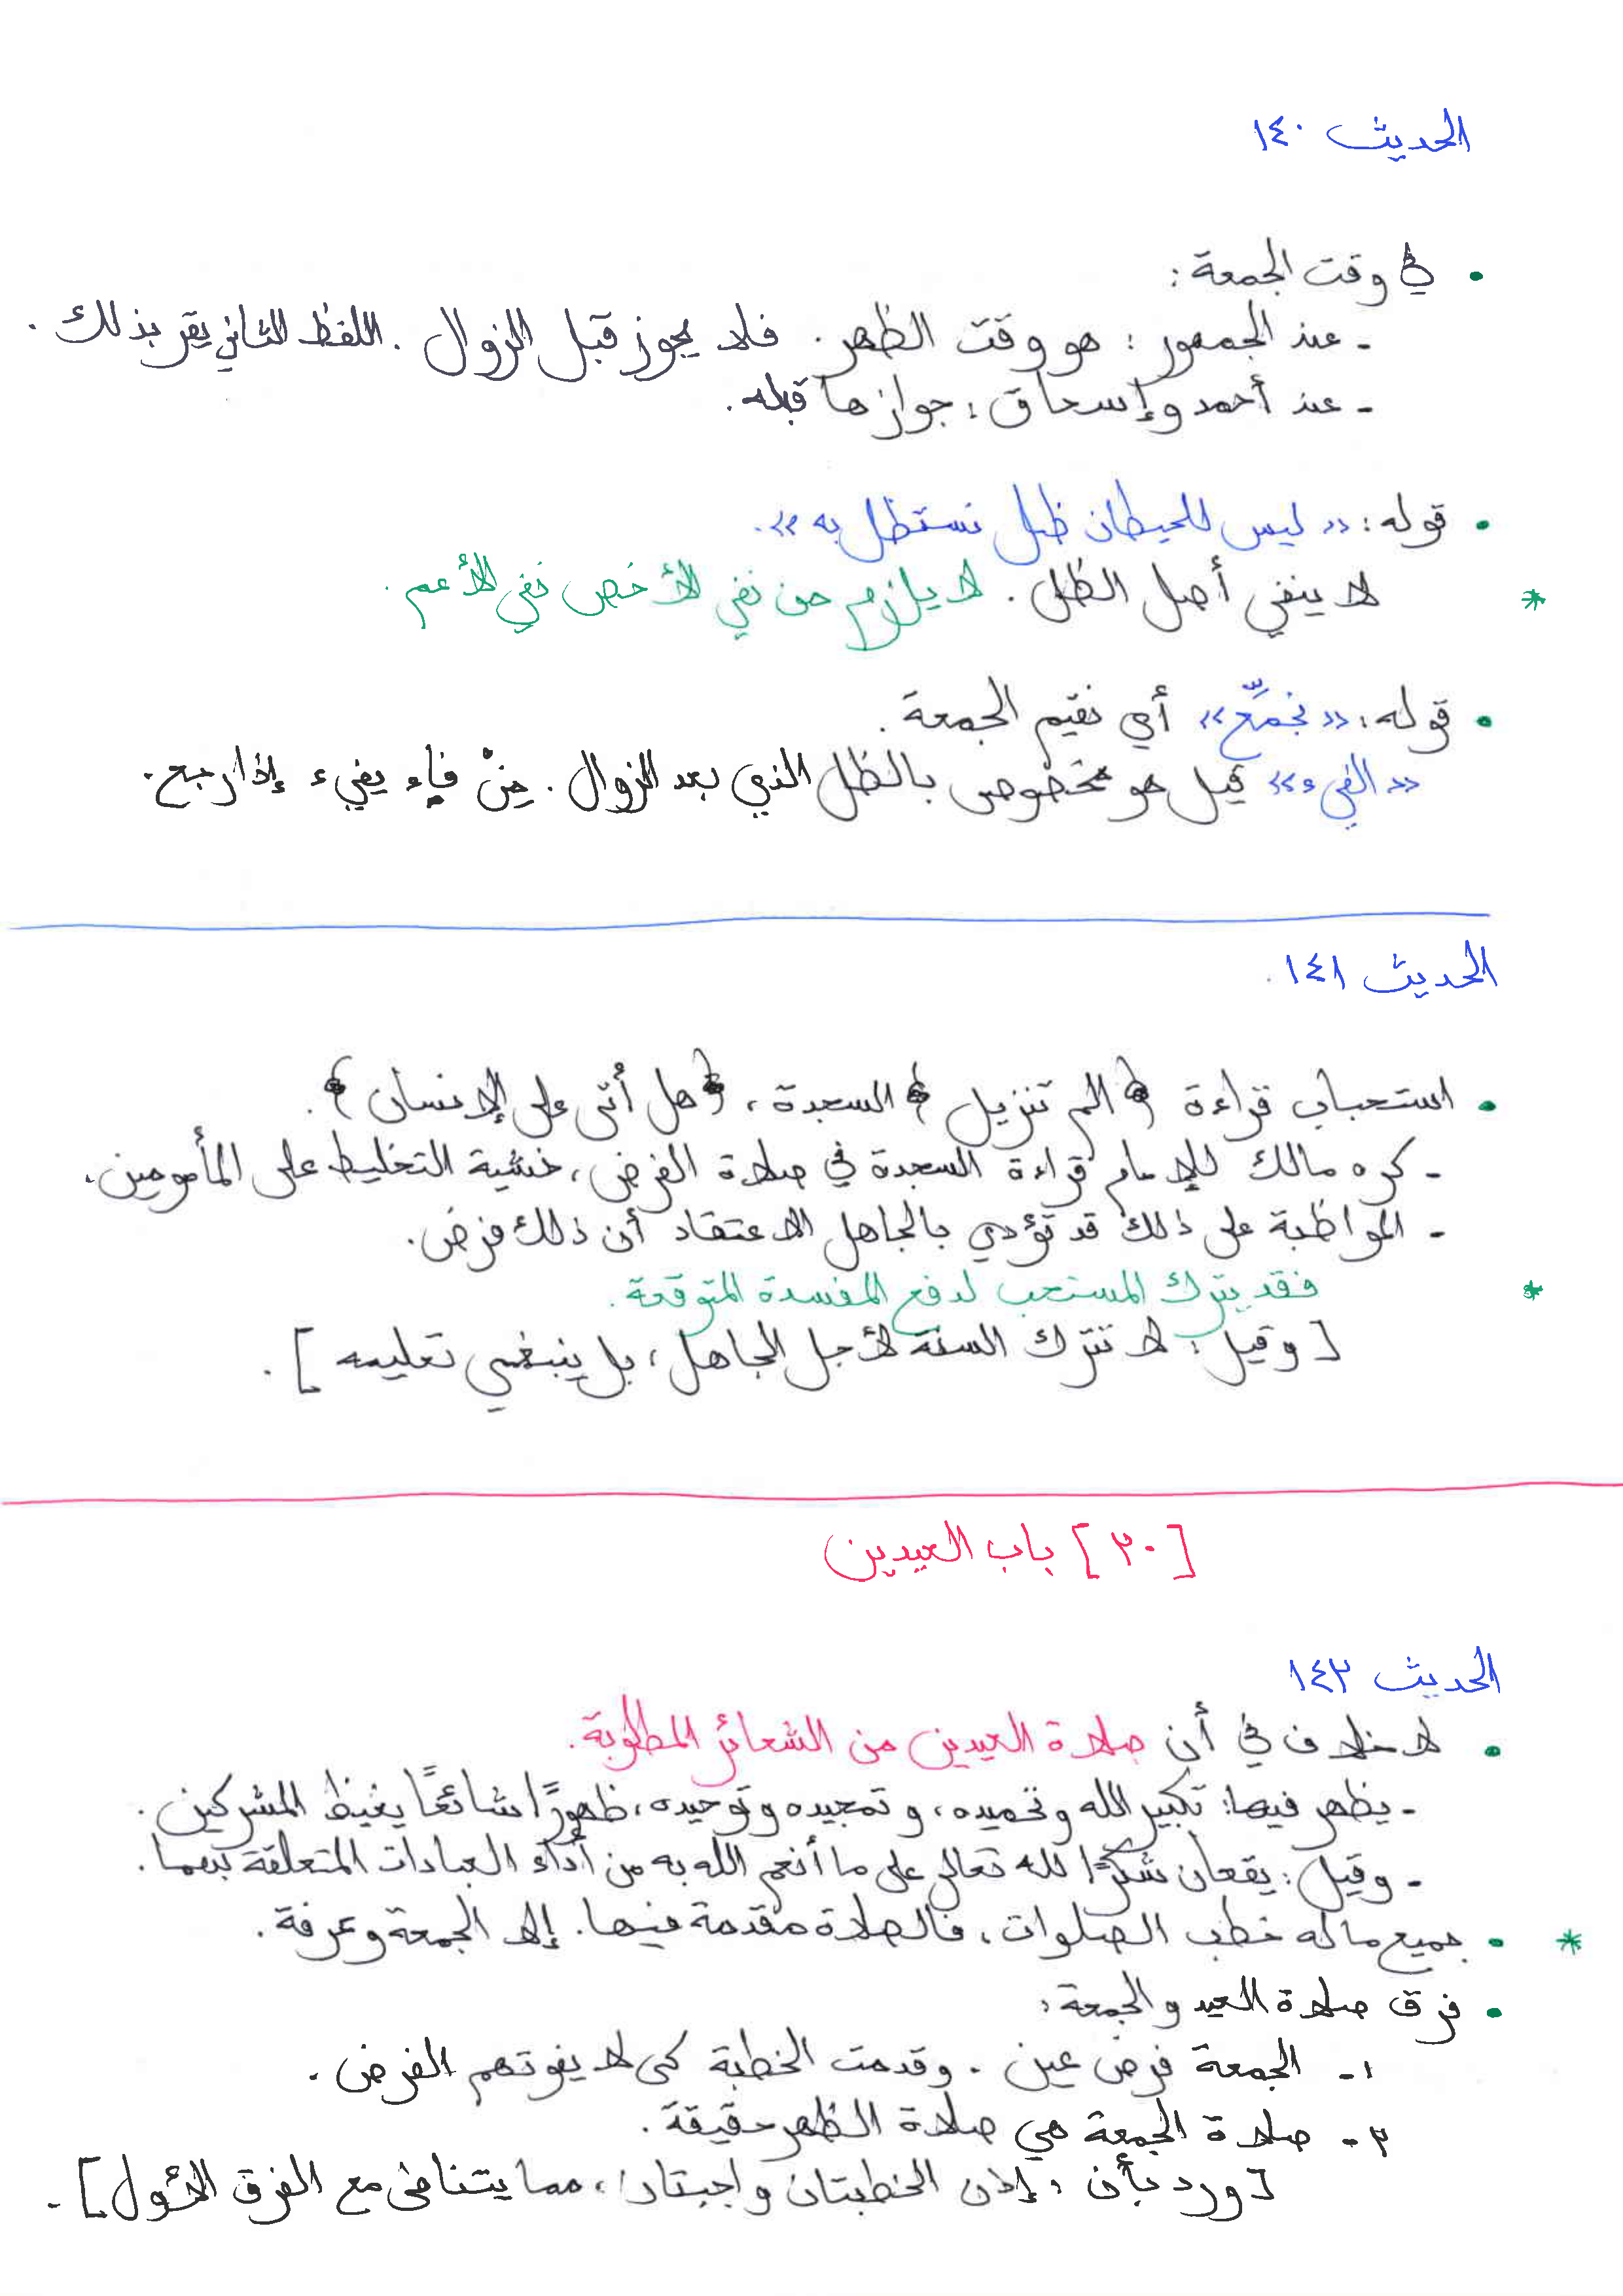 الحديث ١٤٠
• في وقت الجمعة :
- عند الجمهور : هو وقت الظهر . فلا يجوز قبل الزوال . اللفظ الثاني يقر بذلك .
- عند أحمد وإسحاق : جوازها قبله .
• قوله : « ليس للحيطان ظل نستظل به » .
* لا ينفي أصل الظل . لا يلزم من نفي الأخص نفي الأعم .
• قوله : « نجمّع » أي نقيم الجمعة .
« الفيء » قيل هو مخصوص بالظل الذي بعد الزوال . مِنْ فاء يفيء إذا رجع .
الحديث ١٤١ .
• استحباب قراءة ﴿ الم تنزيل ﴾ السجدة ، ﴿ هل أتى على الإنسان ﴾ .
- كره مالك للإمام قراءة السجدة في صلاة الفرض ، خشية التخليط على المأمومين .
- المواظبة على ذلك قد تؤدي بالجاهل الاعتقاد أن ذلك فرض .
* فقد يترك المستحب لدفع المفسدة المتوقعة .
[ وقيل : لا تترك السنة لأجل الجاهل ، بل ينبغي تعليمه ] .
[ ٢٠ ] باب العيدين
الحديث ١٤٢
• لا خلاف في أن صلاة العيدين من الشعائر المطلوبة .
- يظهر فيها : تكبير الله وتحميده ، وتمجيده وتوحيده ، ظهورًا شائعًا يغيظ المشركين .
- وقيل : يقعان شكرًا لله تعالى على ما أنعم الله به من أداء العبادات المتعلقة بهما .
* • جميع ما له خطب الصلوات ، فالصلاة مقدمة فيها . إلا الجمعة وعرفة .
• فرق صلاة العيد والجمعة :
١- الجمعة فرض عين . وقدمت الخطبة كي لا يفوتهم الفرض .
٢- صلاة الجمعة هي صلاة الظهر حقيقة .
[ ورد بأن : إذن الخطبتان واجبتان ، مما يتنافى مع الفرق الأول ] .